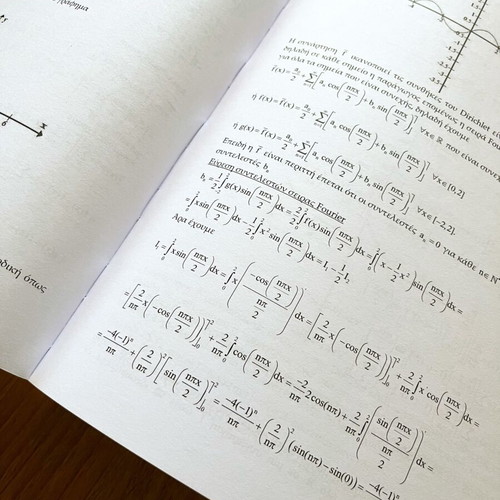 γράφημα
x
6
δική όπως
1.5
-1
-1.5
-2
-2.5
-3
-3.5
Η συνάρτηση f̃ ικανοποιεί τις συνθήκες του Dirichlet
δηλαδή σε κάθε σημείο η παράγωγος επομένως η σειρά Fou
για όλα τα σημεία που είναι συνεχής, δηλαδή έχουμε
f̃(x) = a₀/2 + Σ[aₙcos(nπx/2) + bₙsin(nπx/2)], ∀x∈ℝ που είναι συνεχ
ή f(x) = f̃(x) = a₀/2 + Σ[aₙcos(nπx/2) + bₙsin(nπx/2)], ∀x∈[0,2]
ή g(x) = f̃(x) = a₀/2 + Σ[aₙcos(nπx/2) + bₙsin(nπx/2)], ∀x∈[-2,2].
Επειδή η f̃ είναι περιττή έπεται ότι οι συντελεστές aₙ = 0 για κάθε n∈N
συντελεστές bₙ
Εύρεση συντελεστών σειράς Fourier
bₙ = 1/2 ∫₋₂² g(x)sin(nπx/2)dx = 2/2 ∫₀² f(x)sin(nπx/2)dx = ∫₀² (x − 1/2 x²)sin(nπx/2)dx =
= ∫₀² x sin(nπx/2)dx − 1/2 ∫₀² x² sin(nπx/2)dx = I₁ − 1/2 I₂
Άρα έχουμε
I₁ = ∫₀² x sin(nπx/2)dx = ∫₀² x (−cos(nπx/2) / (nπ/2))′ dx = [2/nπ x(−cos(nπx/2))]₀² + 2/nπ ∫₀² x′cos(nπx/2)dx =
= [2/nπ x(−cos(nπx/2))]₀² + 2/nπ ∫₀² cos(nπx/2)dx = −2/nπ 2cos(nπ) + 2/nπ ∫₀² (sin(nπx/2) / (nπ/2))′ dx =
= −4(−1)ⁿ/nπ + (2/nπ)² [sin(nπx/2)]₀² = −4(−1)ⁿ/nπ + (2/nπ)² (sin(nπ) − sin(0)) = −4(−1)ⁿ